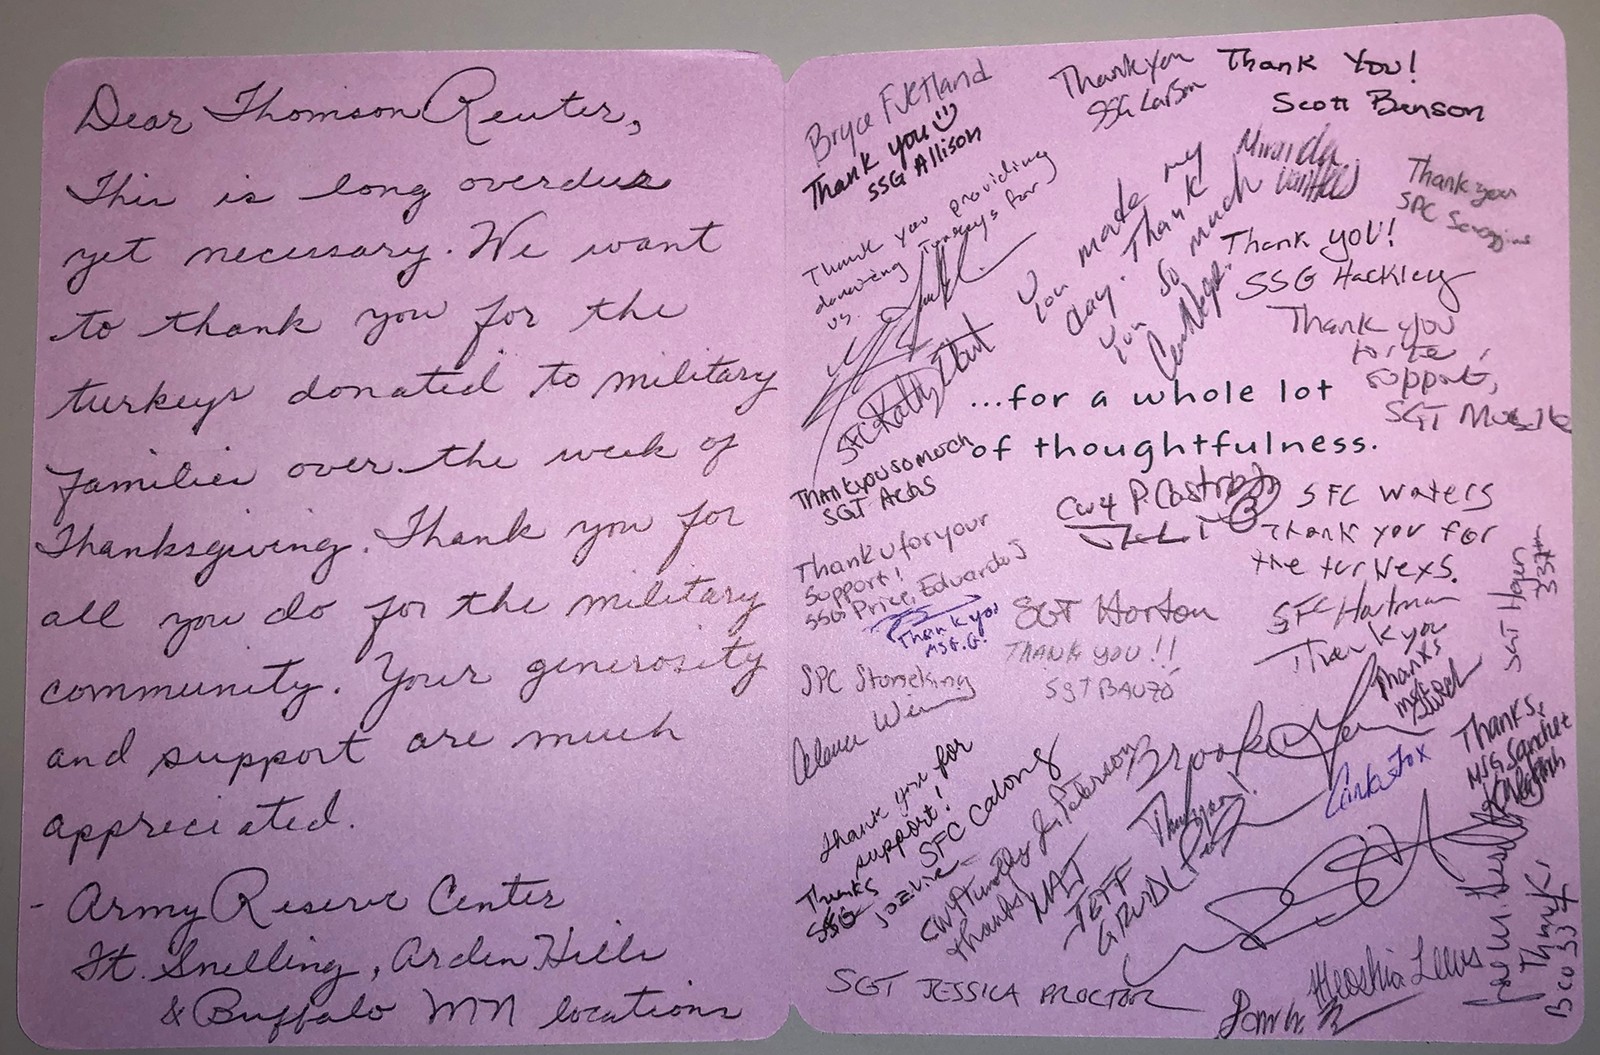 Dear Thomson Reuter,
This is long overdue
yet necessary. We want
to thank you for the
turkeys donated to military
families over the week of
Thanksgiving. Thank you for
all you do for the military
community. Your generosity
and support are much
appreciated.
- Army Reserve Center
Ft. Snelling, Arden Hills
& Buffalo MN locations
Bryce Fjetland
Thank you
SSG Allison
Thank you
SSG Larson
Thank You!
Scott Benson
Thank you providing
donating turkeys for
us.
You made my
day. Thank
you so much
Miranda
Thank you
SPC
Thank you!
SSG Hackley
Thank you
for the
support,
SGT
SFC Kathy
...for a whole lot
of thoughtfulness.
Thank you so much
SGT
CW4 P. Castro
SFC Waters
Thank you for
the turkeys.
Thank u for your
support!
SSG Price, Eduardo J
Thank you
MSG. G.
SGT Horton
THANK YOU!!
SGT BAUZO
SFC Hartman
Thank you
SGT Hogan
Thanks
SPC Stoneking
Thanks,
MSG Sanchez
Thank you for
support!
SFC Calong
Peterson
Thanks!
Brooke
Thank you!
Fox
Thanks
SSG
JEFF
SGT JESSICA PROCTOR
Heoshia Lewis